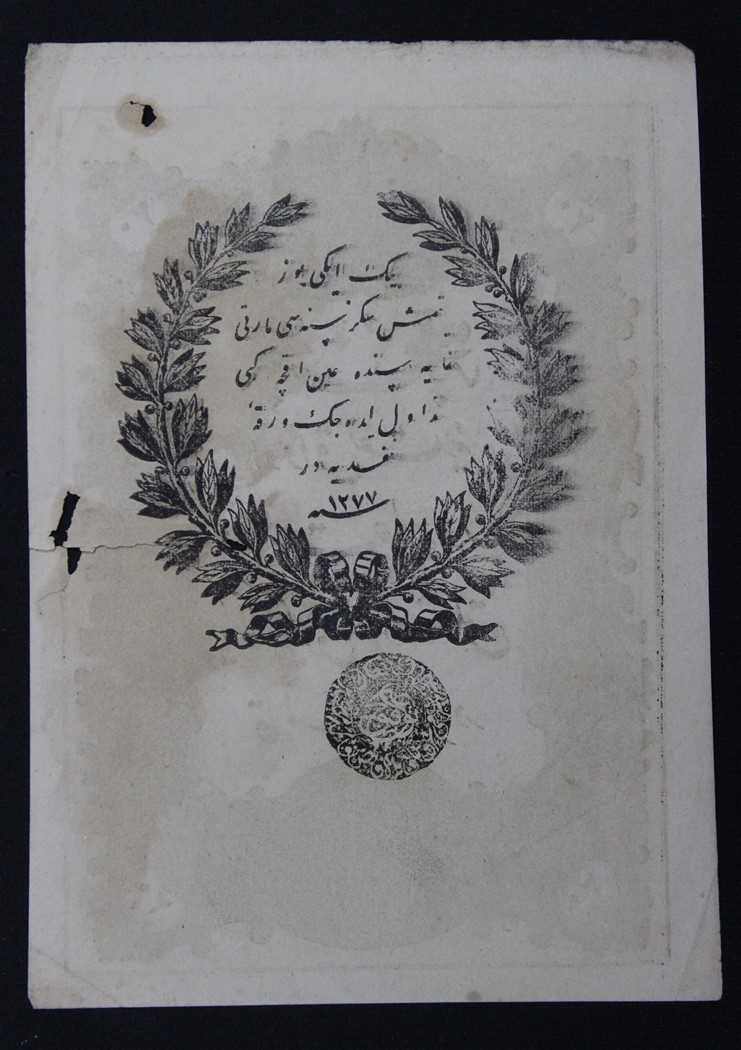 بیك ایکی یوز
یتمش سکز سنه سی مارتی
غایه سنده عین اقچه کبی
تداول ایده جك ورقۀ
نقدیه در
سنه ۱۲۷۷